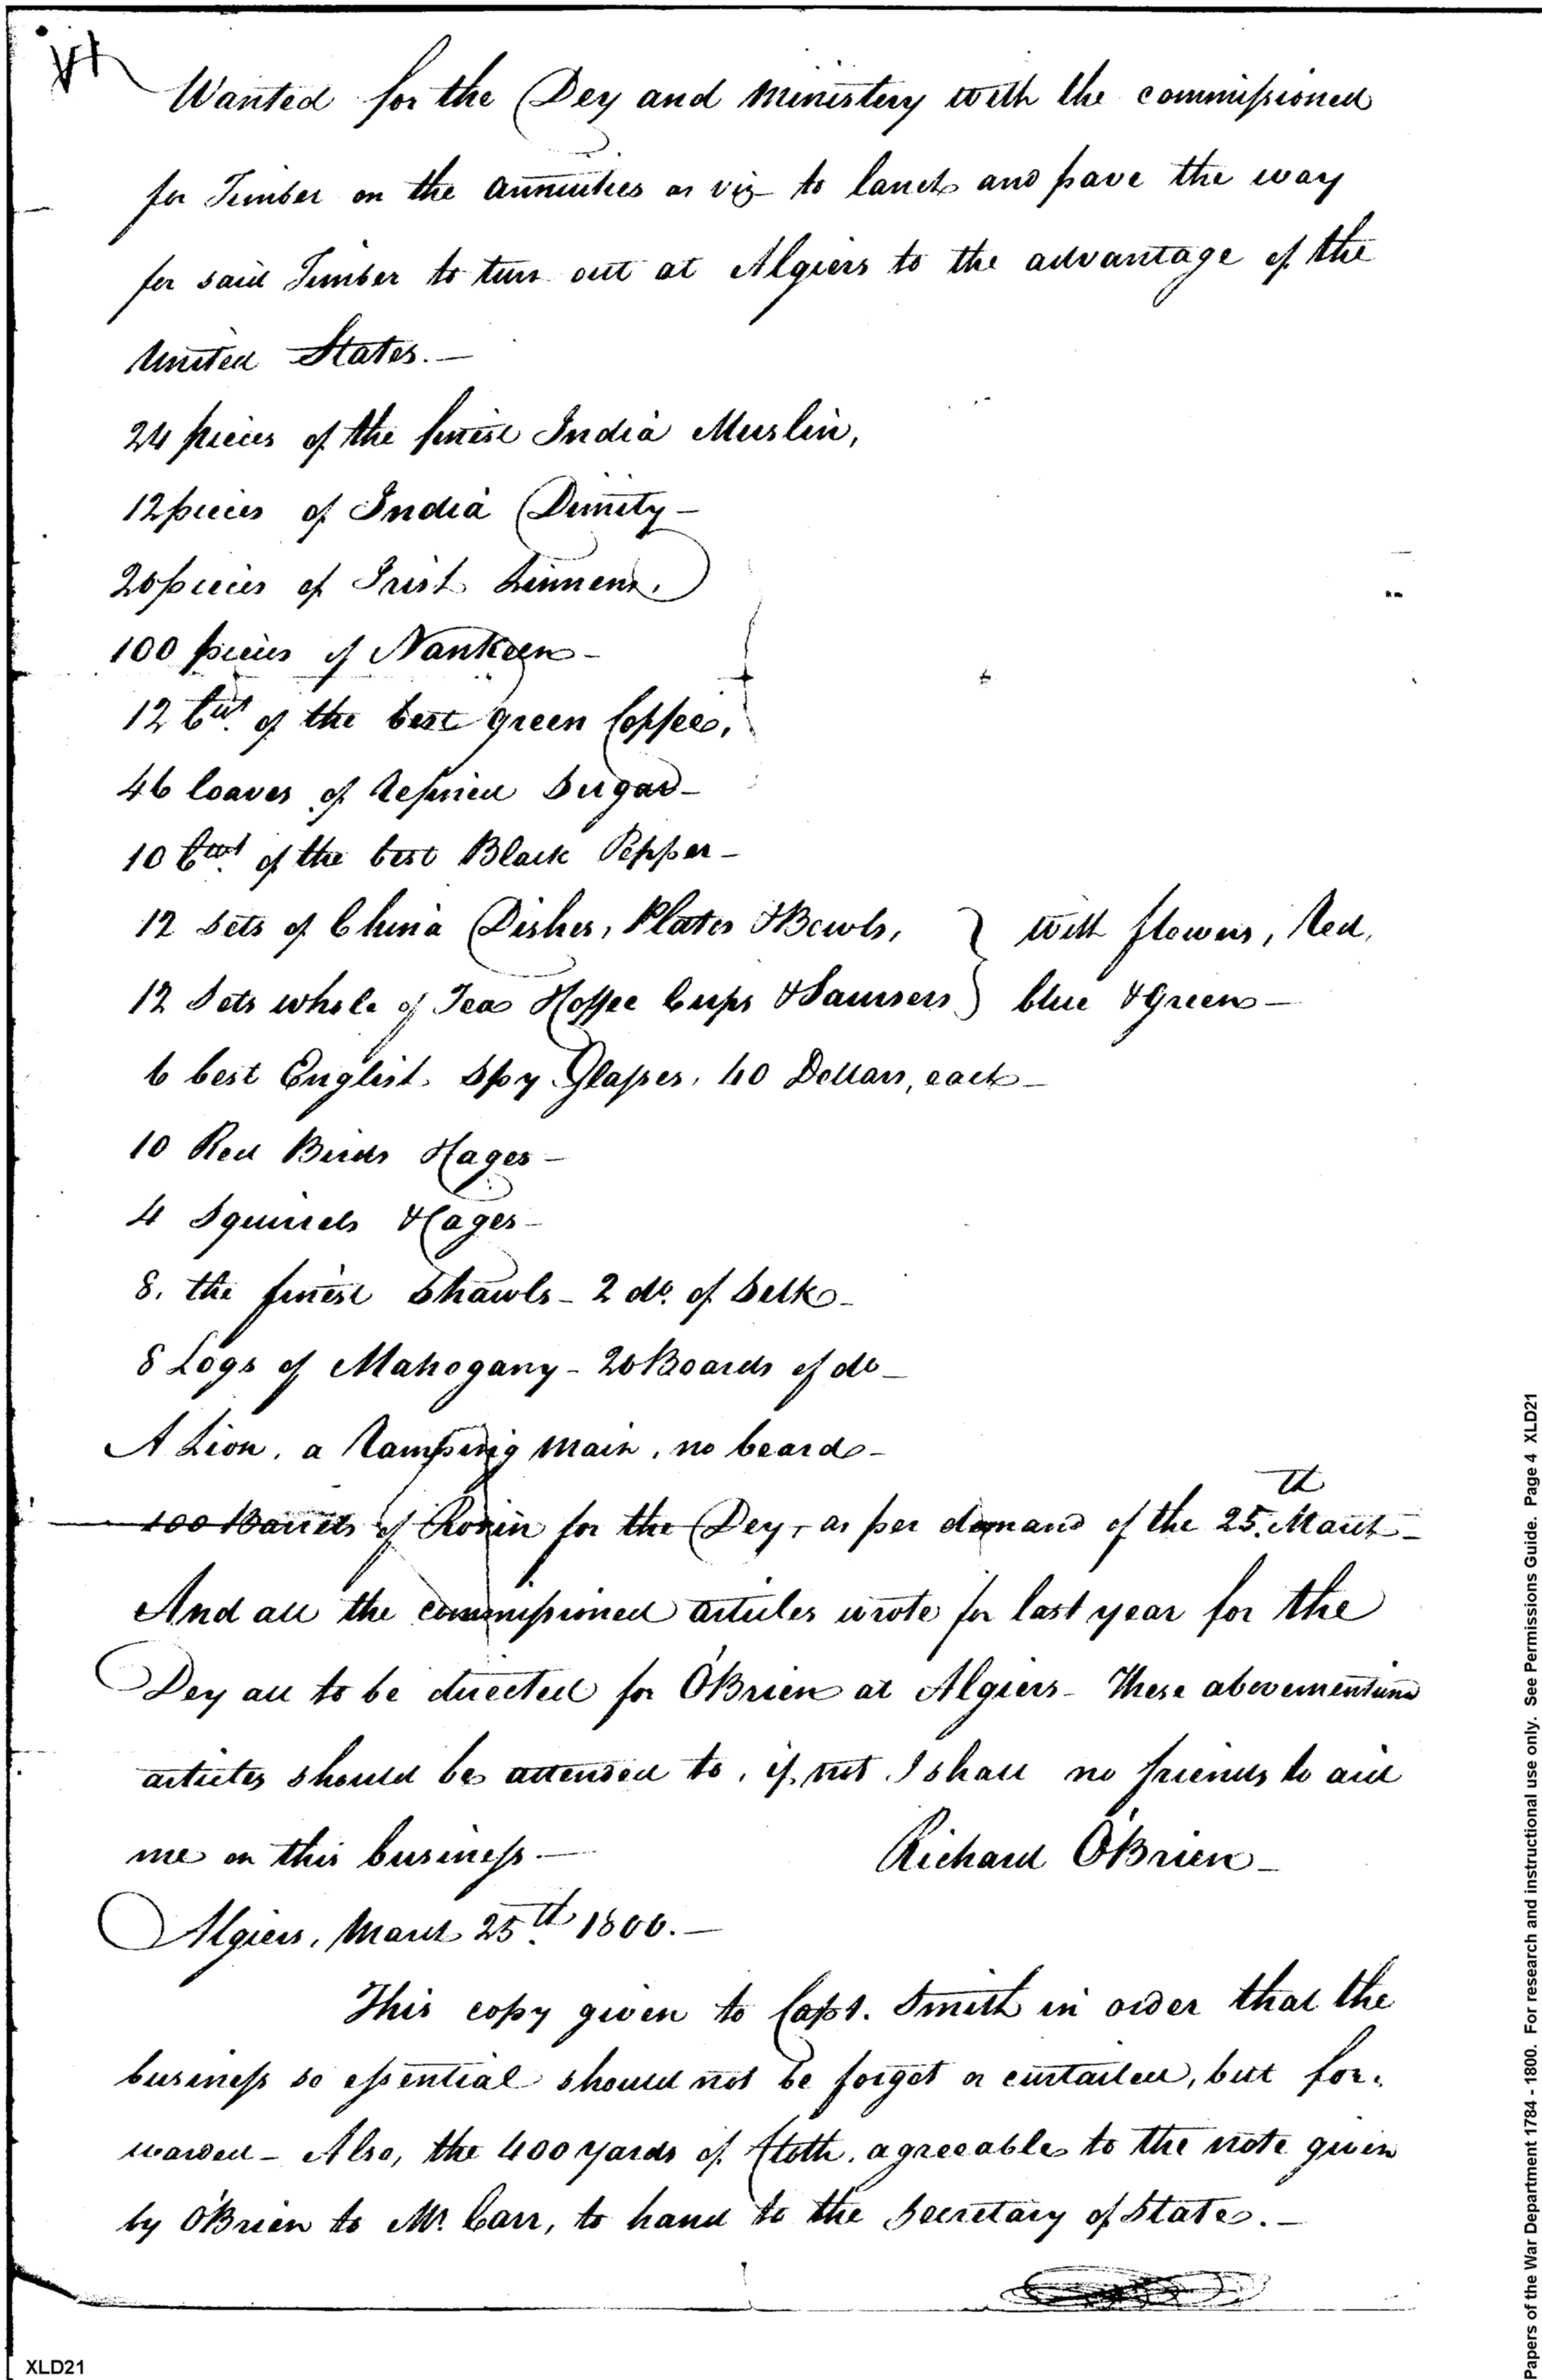 Wanted for the Dey and ministery with the commissioned
for Timber on the annuities as viz to lanch and pave the way
for said Timber to turn out at Algiers to the advantage of the
United States.—
24 pieces of the finest India Muslin,
12 pieces of India Dimity—
20 pieces of Irish Linnens,
100 pieces of Nankeen—
12 Cwt. of the best green Coffee,
46 loaves of refined Sugar—
10 Cwt. of the best Black Pepper—
12 Sets of China Dishes, Plates & Bowls, } with flowers, red,
12 Sets whole of Tea & Coffee Cups & Saursers } blue & Green—
6 best English Spy Glasses, 40 Dollars, each—
10 Red Birds & Cages—
4 Squirrels & Cages—
8. the finest Shawls— 2 do. of Silk—
8 Logs of Mahogany— 20 Boards of do—
A Lion, a ramping main, no beard—
100 Barrels of Rosin for the Dey, as per demand of the 25.th March—
And all the commissioned articles wrote for last year for the
Dey all to be directed for O'Brien at Algiers— These abovementiond
articles should be attended to, if not I shall no friends to aid
me on this business.—
Richard O'Brien—
Algiers, March 25th. 1800.—
This copy given to Capt. Smith in order that the
business so essential should not be forgot or curtailed, but for-
warded— Also, the 400 yards of Cloth, agreeable to the note given
by O'Brien to Mr. Carr, to hand to the Secretary of State.—
XLD21
Papers of the War Department 1784 - 1800. For research and instructional use only. See Permissions Guide. Page 4 XLD21